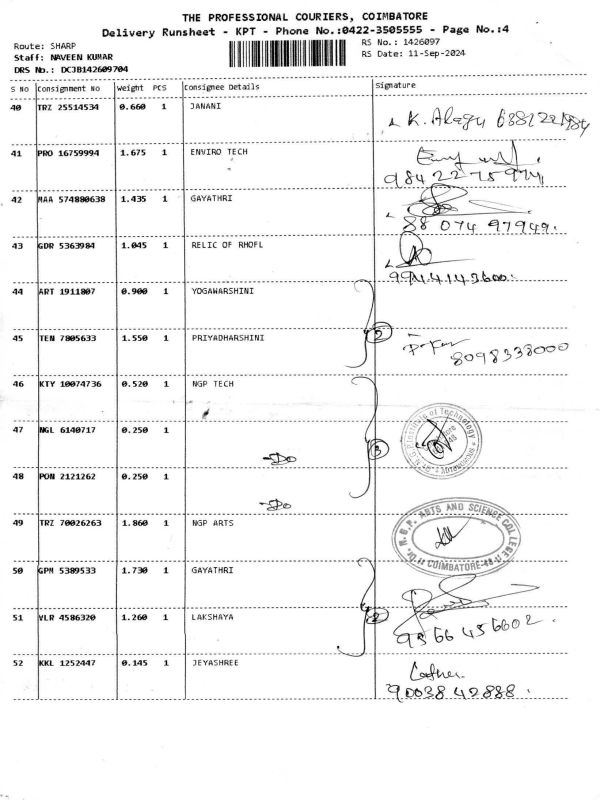 THE PROFESSIONAL COURIERS, COIMBATORE
Delivery Runsheet - KPT - Phone No.:0422-3505555 - Page No.:4
Route: SHARP
RS No.: 1426097
Staff: NAVEEN KUMAR
RS Date: 11-Sep-2024
DRS No.: DCJB142609704
S NO Consignment No Weight PCS Consignee Details Signature
40 TRZ 25514534 0.660 1 JANANI
K. Alagu
41 PRO 16759994 1.675 1 ENVIRO TECH
98422 75974
42 MAA 574880638 1.435 1 GAYATHRI
88 074 97949.
43 GDR 5363984 1.045 1 RELIC OF RHOFL
44 ART 1911807 0.900 1 YOGAWARSHINI
45 TEN 7805633 1.550 1 PRIYADHARSHINI 2
8098338000
46 KTY 10074736 0.520 1 NGP TECH
47 NGL 6140717 0.250 1
-Do 3
48 PON 2121262 0.250 1
-Do
49 TRZ 70026263 1.860 1 NGP ARTS
Dr. N.G.P. ARTS AND SCIENCE COLLEGE
COIMBATORE-48
50 GPM 5389533 1.730 1 GAYATHRI
51 VLR 4586320 1.260 1 LAKSHAYA 2
9566456602.
52 KKL 1252447 0.145 1 JEYASHREE
90038 42888.